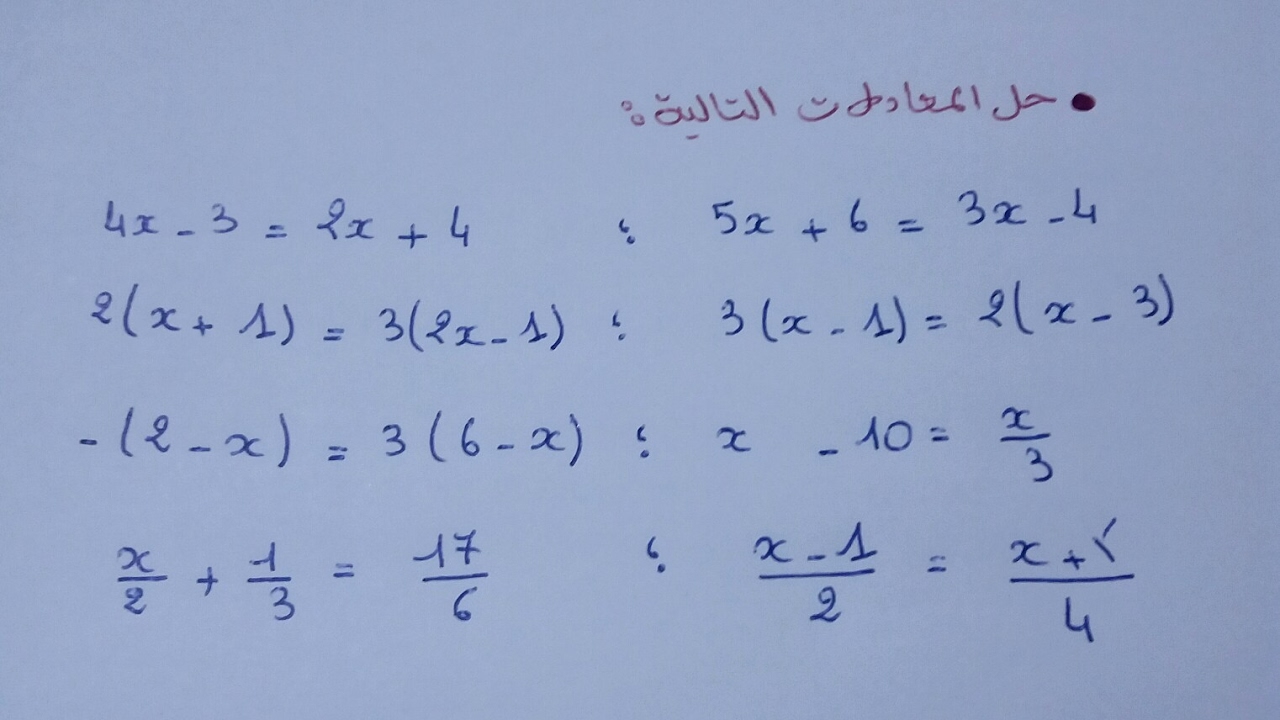 • حل المعادلات التالية :
4x - 3 = 2x + 4 ؛ 5x + 6 = 3x - 4
2(x + 1) = 3(2x - 1) ؛ 3(x - 1) = 2(x - 3)
-(2 - x) = 3(6 - x) ؛ x - 10 = x/3
x/2 + 1/3 = 17/6 ؛ (x - 1)/2 = (x + )/4